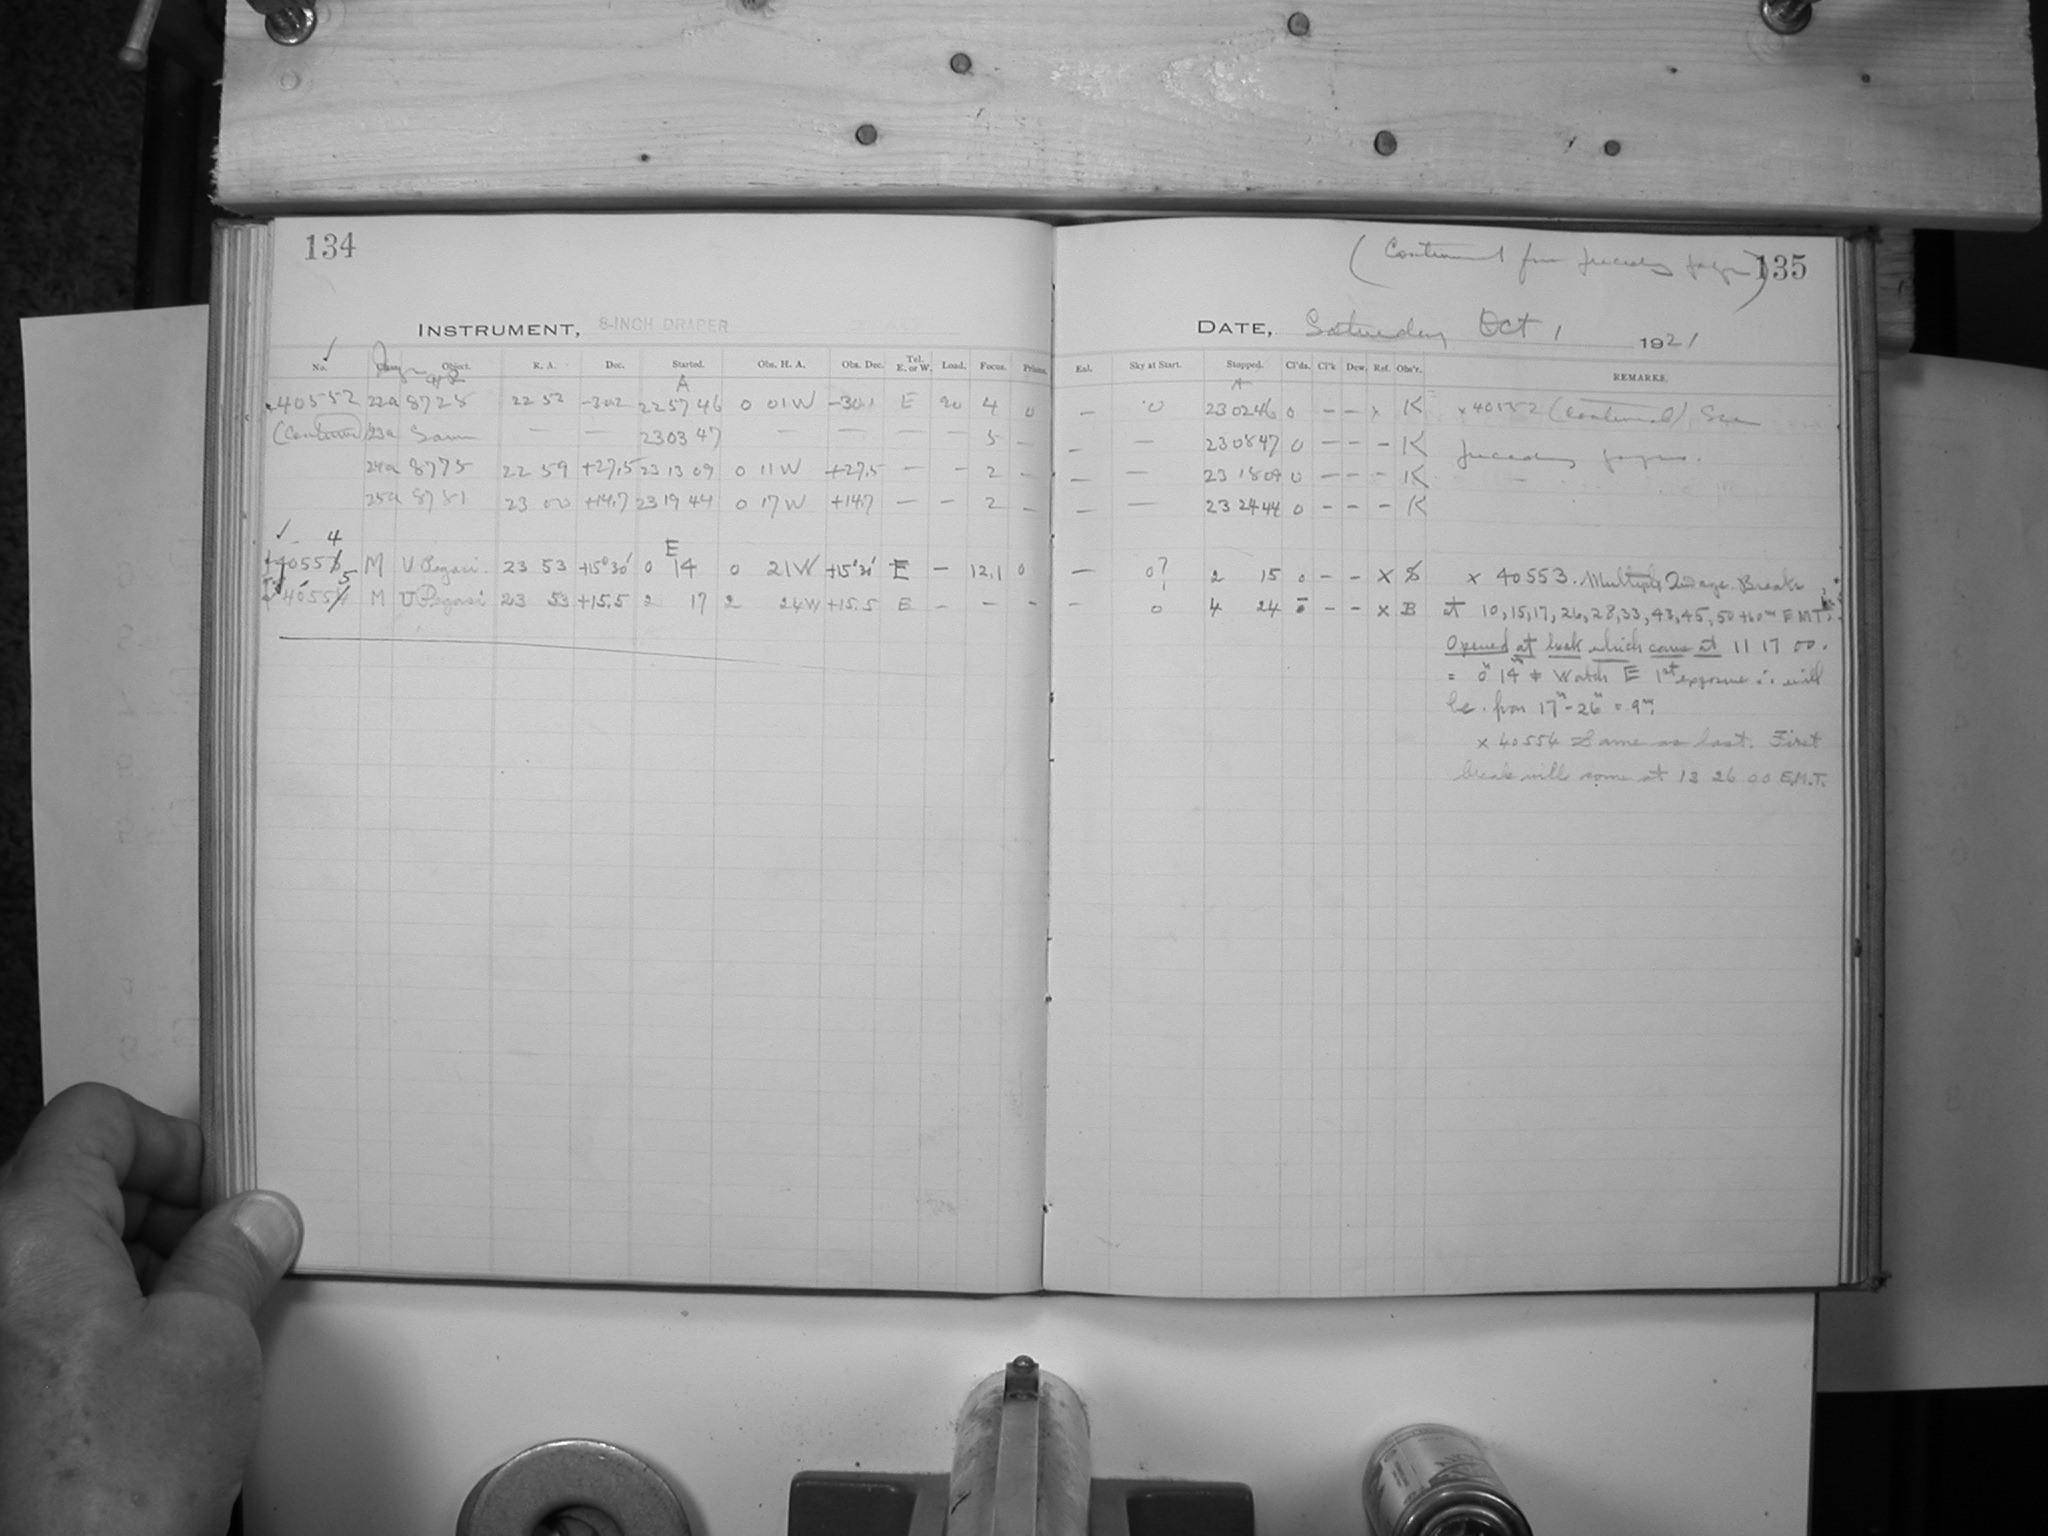 134
(Continued from preceding page) 135
INSTRUMENT, 8-INCH DRAPER
DATE, Saturday Oct 1 1921
No. Class. Object. R. A. Dec. Started. Obs. H. A. Obs. Dec. Tel. E. or W. Load. Focus. Prisms. Enl. Sky at Start. Stopped. Cl'ds. Cl'k Dew. Ref. Obs'r. REMARKS.
A A
40552 22a 8725 22 52 -30.2 22 57 46 0 01W -30.1 E 20 4 0 — 0 23 02 46 0 – – x K x 40552 (Continued) See
(Continued) 23a Same — — 23 03 47 — — — — 5 – – — 23 08 47 0 – – – K preceding pages.
24a 8775 22 59 +27.5 23 13 09 0 11W +27.5 – – 2 – – — 23 18 09 0 – – – K
25a 8781 23 00 +14.7 23 19 44 0 17W +14.7 – – 2 – – — 23 24 44 0 – – – K
4 E
40553 M U Pegasi. 23 53 +15°30' 0 14 0 21W +15°30' E – 12.1 0 — 0? 2 15 0 – – x S x 40553. Multiple Image. Breaks
5
40554 M U Pegasi 23 53 +15.5 2 17 2 24W +15.5 E – – – – 0 4 24 – – x B at 10, 15, 17, 26, 28, 33, 43, 45, 50 + 60m E.M.T.
Opened at break which came at 11 17 00.
= 0h 14m + Watch E 1st exposure ∴ will
be from 17m – 26m = 9m.
x 40554 Same as last. First
break will come at 13 26 00 E.M.T.